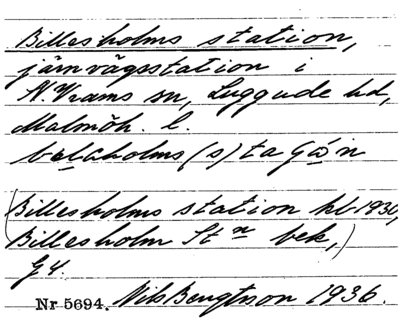 Billesholms station,
järnvägsstation i
N. Vrams sn, Luggude hd,
Malmöh. l.
belaholms(s)ta
(Billesholms station kb 1930,
Billesholm Stn bek,)
Gy.
Nr 5694. Nils Bengtson 1936.